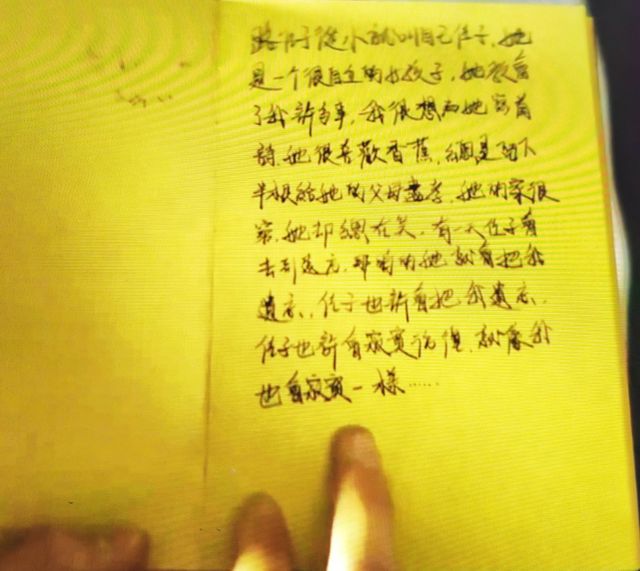 子從小就叫自己任子,她
是一个很自立的女孩子,她教會
了我許多事,我很想为她寫首
詩,她很喜歡香蕉,總是留下
半根給她的父母盡孝,她的家很
窮,她却總在笑,有一天任子會
去到遠方,那時的她就會把我
遺忘,任子也許會把我遺忘,
任子也許會寂寞彷徨,就像我
也會寂寞一樣……